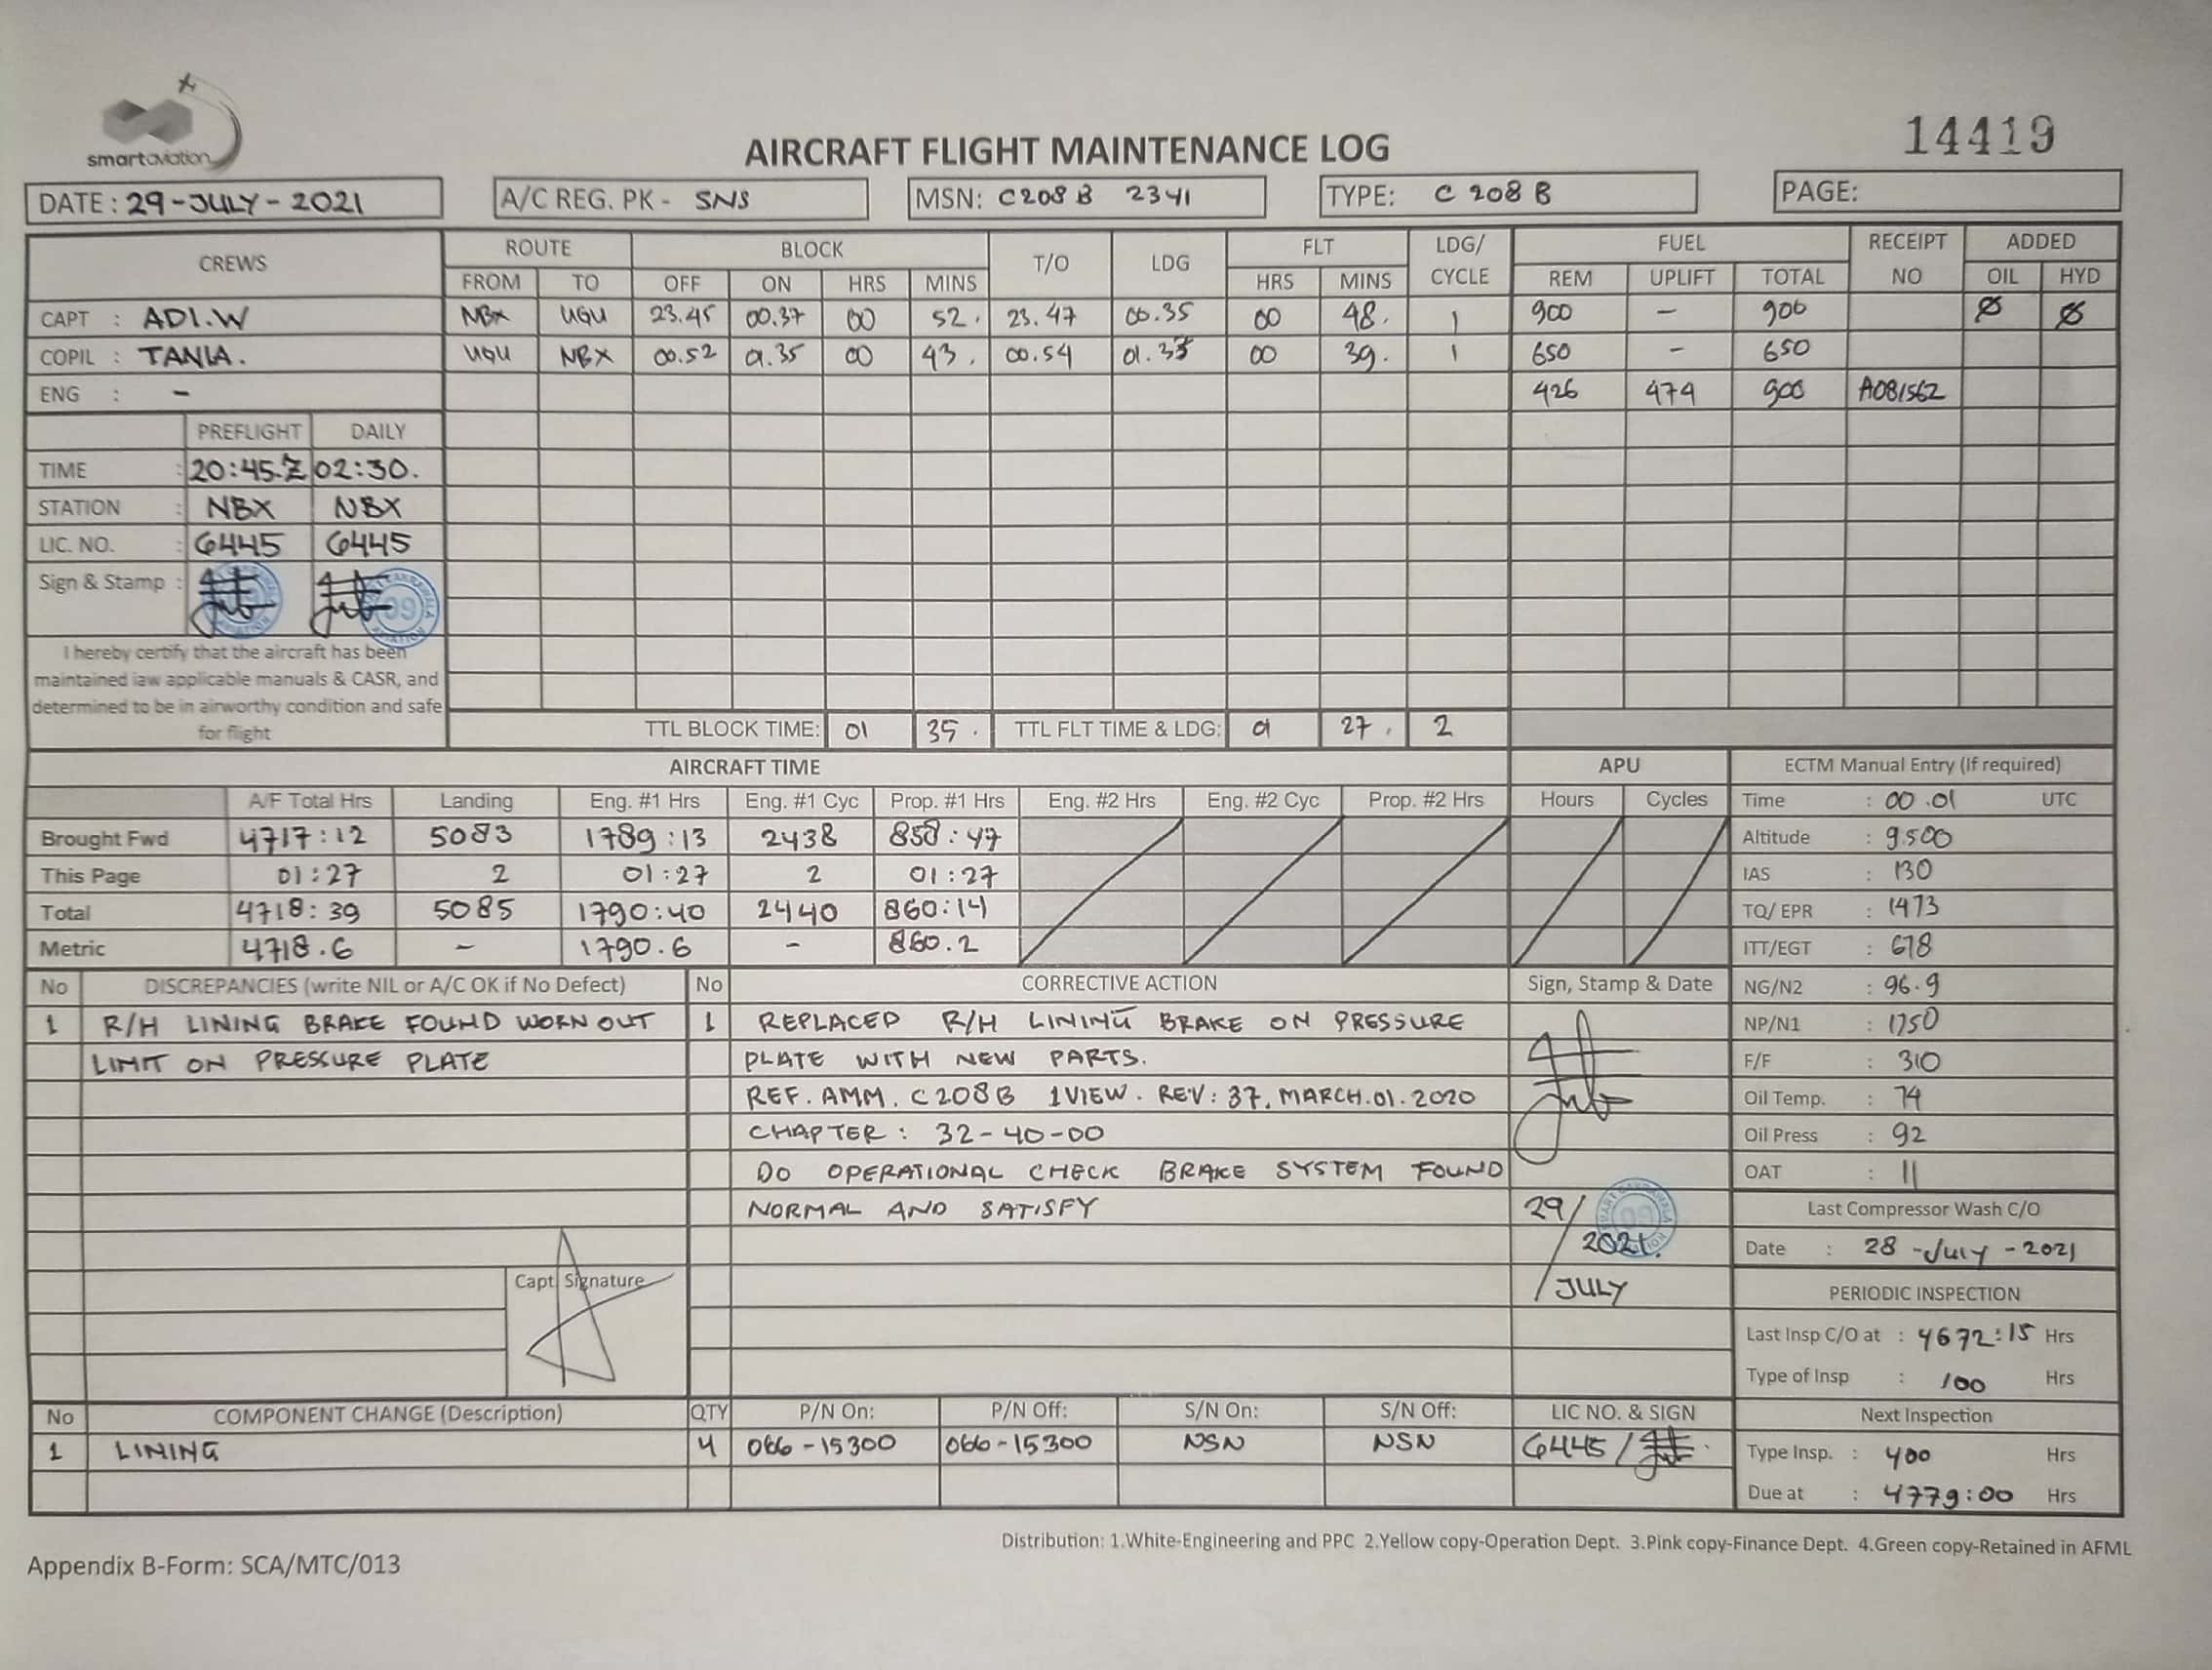 smart aviation
14419
AIRCRAFT FLIGHT MAINTENANCE LOG
DATE : 29-JULY-2021 A/C REG. PK - SNS MSN: C208B 2341 TYPE: C 208 B PAGE:
CREWS ROUTE BLOCK T/O LDG FLT LDG/ CYCLE FUEL RECEIPT NO ADDED
FROM TO OFF ON HRS MINS HRS MINS REM UPLIFT TOTAL OIL HYD
CAPT : ADI.W NBX UGU 23.45 00.37 00 52. 23.47 00.35 00 48. 1 900 - 900 Ø Ø
COPIL : TANIA. UGU NBX 00.52 01.35 00 43. 00.54 01.33 00 39. 1 650 - 650
ENG : - 426 474 900 A081562
PREFLIGHT DAILY
TIME : 20:45.Z 02:30.
STATION : NBX NBX
LIC. NO. : 6445 6445
Sign & Stamp :
I hereby certify that the aircraft has been
maintained iaw applicable manuals & CASR, and
determined to be in airworthy condition and safe
for flight
TTL BLOCK TIME: 01 35. TTL FLT TIME & LDG: 01 27. 2
AIRCRAFT TIME APU ECTM Manual Entry (If required)
A/F Total Hrs Landing Eng. #1 Hrs Eng. #1 Cyc Prop. #1 Hrs Eng. #2 Hrs Eng. #2 Cyc Prop. #2 Hrs Hours Cycles Time : 00.01 UTC
Brought Fwd 4717:12 5083 1789:13 2438 858:47 Altitude : 9500
This Page 01:27 2 01:27 2 01:27 IAS : 130
Total 4718:39 5085 1790:40 2440 860:14 TQ/ EPR : 1473
Metric 4718.6 - 1790.6 - 860.2 ITT/EGT : 678
No DISCREPANCIES (write NIL or A/C OK if No Defect) No CORRECTIVE ACTION Sign, Stamp & Date NG/N2 : 96.9
1 R/H LINING BRAKE FOUND WORN OUT 1 REPLACED R/H LINING BRAKE ON PRESSURE NP/N1 : 1750
LIMIT ON PRESSURE PLATE PLATE WITH NEW PARTS. F/F : 310
REF. AMM. C208B 1VIEW. REV: 37, MARCH.01.2020 Oil Temp. : 74
CHAPTER : 32-40-00 Oil Press : 92
DO OPERATIONAL CHECK BRAKE SYSTEM FOUND OAT : 11
NORMAL AND SATISFY 29/ Last Compressor Wash C/O
2021. Date : 28-July-2021
Capt Signature / JULY PERIODIC INSPECTION
Last Insp C/O at : 4672:15 Hrs
Type of Insp : 100 Hrs
No COMPONENT CHANGE (Description) QTY P/N On: P/N Off: S/N On: S/N Off: LIC NO. & SIGN Next Inspection
1 LINING 4 066-15300 066-15300 NSN NSN 6445/ Type Insp. : 400 Hrs
Due at : 4779:00 Hrs
Distribution: 1.White-Engineering and PPC 2.Yellow copy-Operation Dept. 3.Pink copy-Finance Dept. 4.Green copy-Retained in AFML
Appendix B-Form: SCA/MTC/013